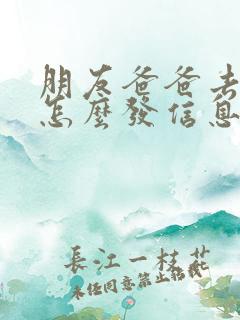 朋友爸爸去
怎麼發信息
長江一枝花
未經同意禁止搭載